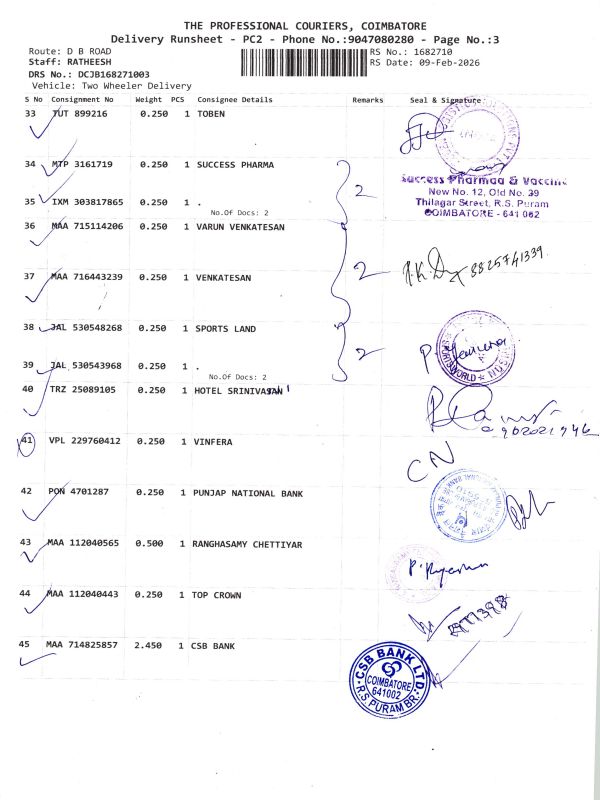 THE PROFESSIONAL COURIERS, COIMBATORE
Delivery Runsheet - PC2 - Phone No.:9047080280 - Page No.:3
Route: D B ROAD
RS No.: 1682710
Staff: RATHEESH
RS Date: 09-Feb-2026
DRS No.: DCJB168271003
Vehicle: Two Wheeler Delivery
S No Consignment No Weight PCS Consignee Details Remarks Seal & Signature
33 TUT 899216 0.250 1 TOBEN
34 MTP 3161719 0.250 1 SUCCESS PHARMA
2
Success Pharmaa & Vaccine
New No. 12, Old No. 39
Thilagar Street, R.S. Puram
COIMBATORE - 641 002
35 IXM 303817865 0.250 1 .
No.Of Docs: 2
36 MAA 715114206 0.250 1 VARUN VENKATESAN
2
8825741339
37 MAA 716443239 0.250 1 VENKATESAN
38 JAL 530548268 0.250 1 SPORTS LAND
2
SPORTSWORLD
39 JAL 530543968 0.250 1 .
No.Of Docs: 2
40 TRZ 25089105 0.250 1 HOTEL SRINIVASAN
41 VPL 229760412 0.250 1 VINFERA
CN
42 PON 4701287 0.250 1 PUNJAP NATIONAL BANK
43 MAA 112040565 0.500 1 RANGHASAMY CHETTIYAR
44 MAA 112040443 0.250 1 TOP CROWN
45 MAA 714825857 2.450 1 CSB BANK
CSB BANK LTD
COIMBATORE
641002
R.S PURAM BR.